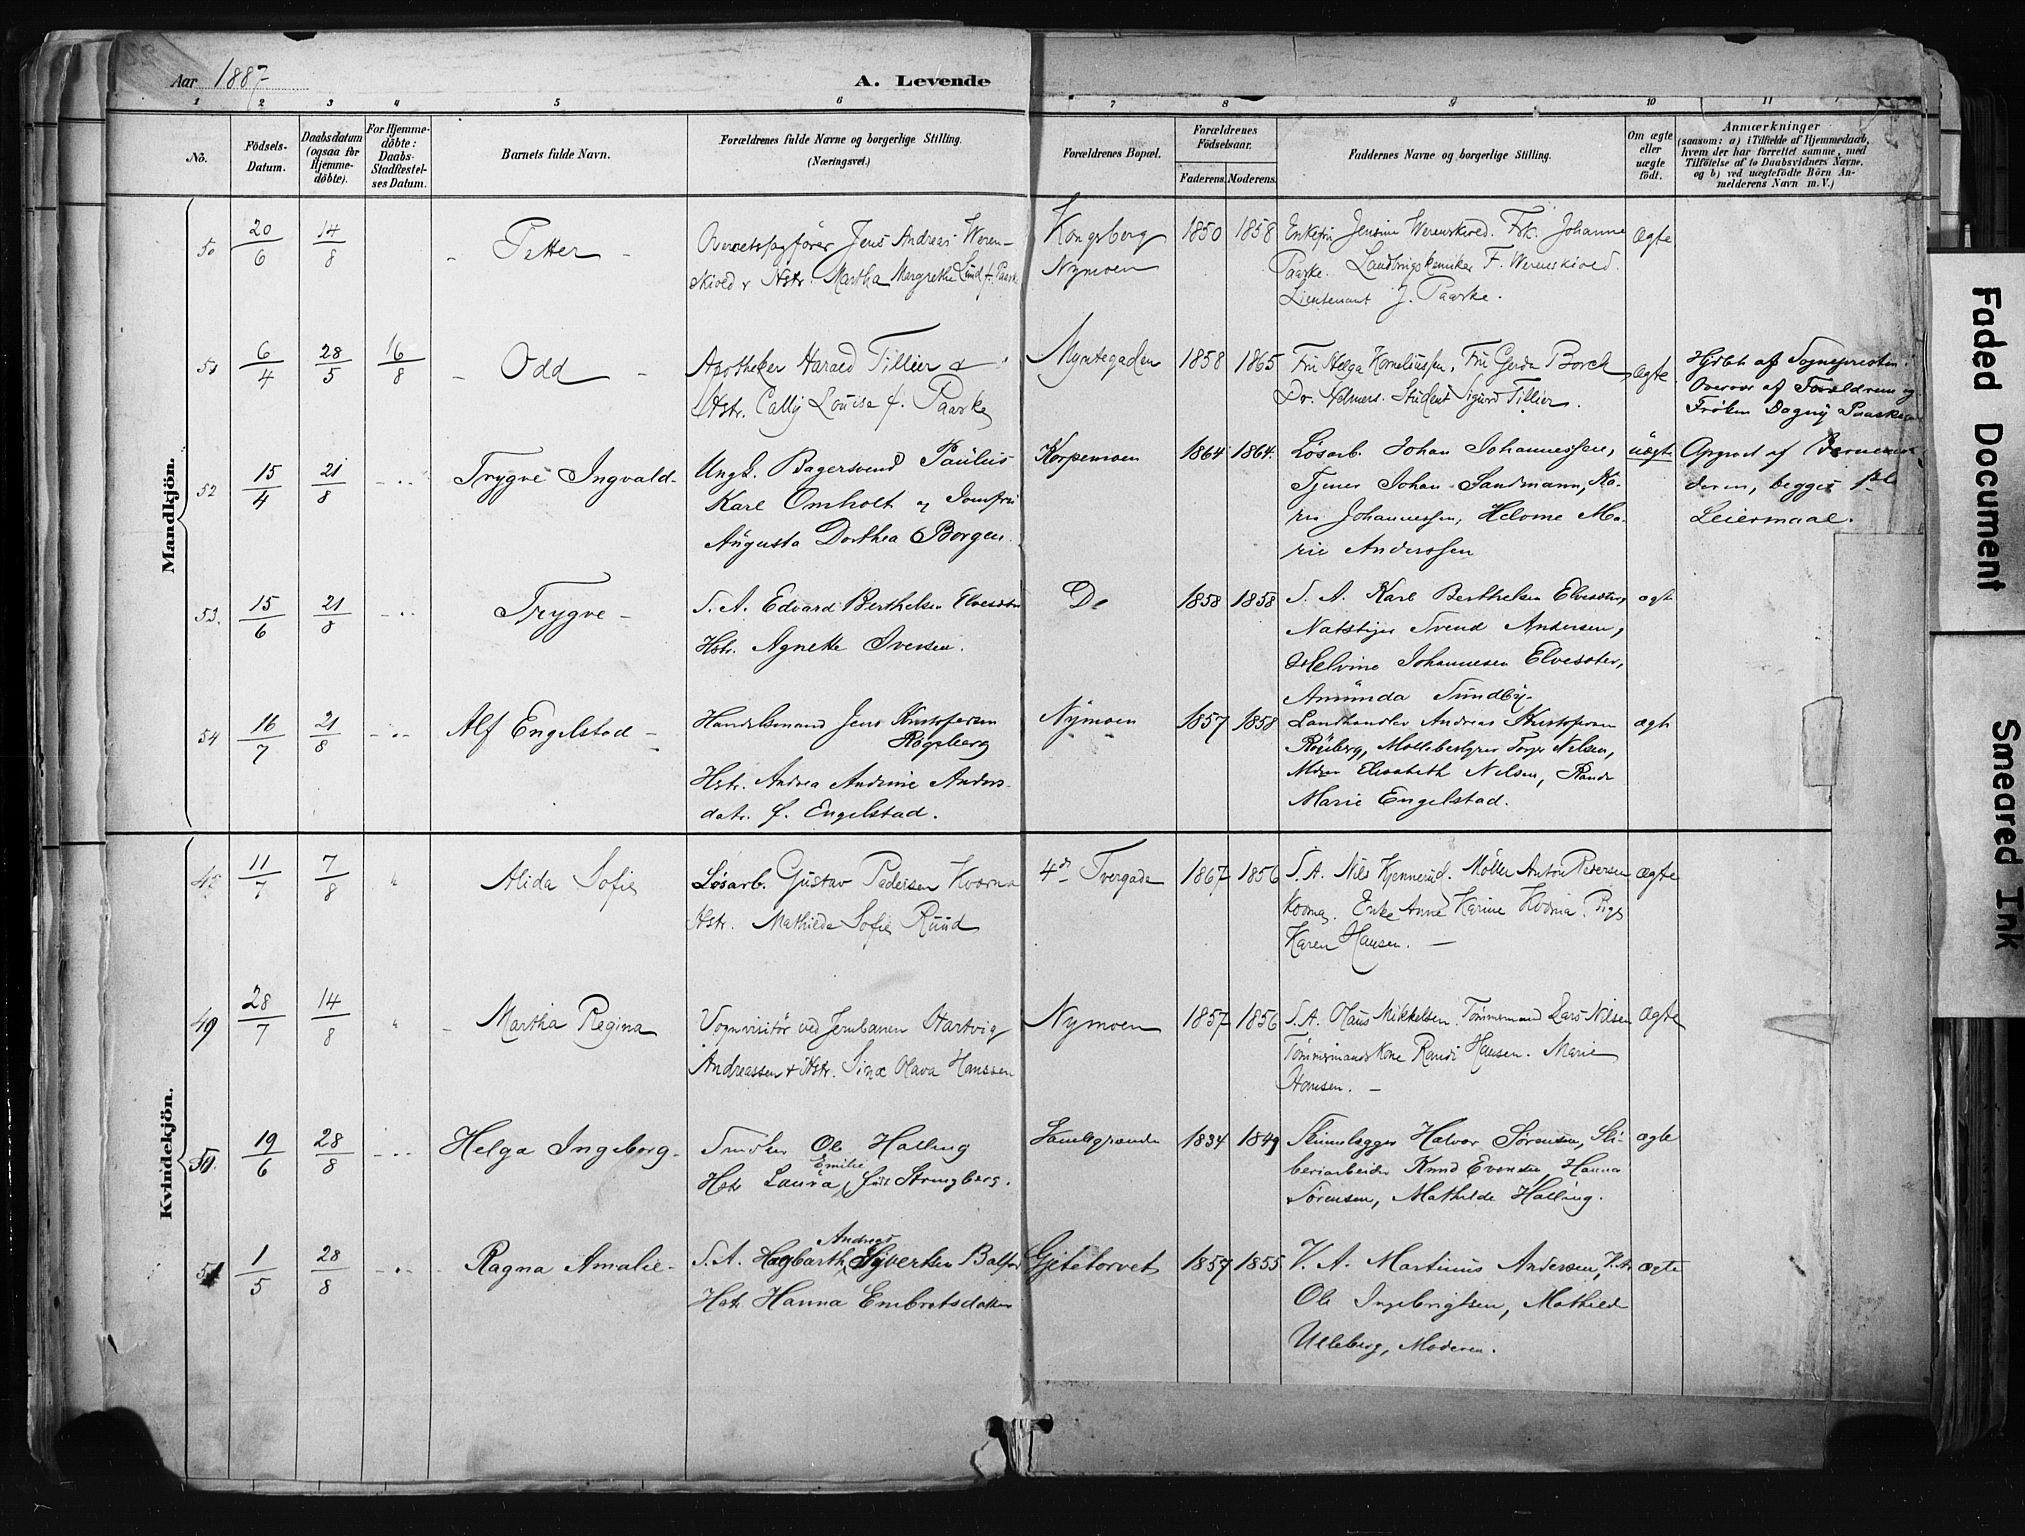 Aar 1887
A. Levende
1 2 3 4 5 6 7 8 9 10 11
No.
Födsels-
Datum.
Daabsdatum
(ogsaa for
Hjemme-
döbte).
For Hjemme-
döbte:
Daabs-
Stadfæstel-
ses Datum.
Barnets fulde Navn.
Forældrenes fulde Navne og borgerlige Stilling.
(Næringsvei.)
Forældrenes Bopæl.
Forældrenes
Födselsaar.
Faderens. Moderens.
Faddernes Navne og borgerlige Stilling.
Om ægte
eller
uægte
født.
Anmærkninger
(saasom: a) i Tilfælde af Hjemmedaab,
hvem der har forrettet samme, med
Tilföielse af to Daabsvidners Navne,
og b) ved uægtefödte Börn An-
melderens Navn m. V.)
Mandkjön.
50 20/6 14/8 - Petter -
Overretssagfører Jens Andreas Weren-
skiold & Hstr. Martha Margrethe Lund f. Paaske
Kongsberg
Nymoen
1850 1858
Enkefru Jensine Werenskiold. Frk. Johanne
Paaske. Landbrugskemiker F. Werenskiold.
Lieutenant J. Paaske.
ægte
51 6/4 28/5 16/8 - Odd -
Apotheker Harald Tillier &
Hstr. Cally Louise f. Paaske
Myntegaden
1858 1865
Fru Helga Korneliussen, Fru Gerda Borch
Dr. Helmers. Student Sigurd Tillier.
ægte
Hjdbt af Sognepresten.
Overvær af Forældrene og
Frøken Dagny Paaske
52 15/4 21/8 - " - Trygve Ingvald -
Ungk. Bagersvend Paulus
Karl Omholt og Jomfru
Augusta Dorthea Borgen.
Korpemoen
1864 1864.
Løsarb. Johan Johannessen,
Tjener Johan Sandmann, Ka-
ren Johannessen, Helene Ma-
rie Anderssen
uægte
Opgivet af Barnemo-
deren, begges 1ste
Leiermaal.
53. 15/6 21/8 - " - Trygve -
S. A. Edvard Berthelsen Elvesæter
Hstr. Agnethe Iversen.
Do
1858 1858
S. A. Karl Berthelsen Elvesæter,
Natstiger Svend Andersen,
Helvine Johannesen Elvesæter,
Amunda Sundby.
ægte
54 16/7 21/8 - " - Alf Engelstad -
Handelsmand Jens Kristofersen
Rogsberg
Hstr. Andrea Andrine Anders-
datr. f. Engelstad.
Nymoen
1857 1858
Landhandler Andreas Kristofersen
Møllebestyrer Torger Nilsen,
Elisabeth Nilsen,
Marie Engelstad.
ægte
Kvindekjön.
48 11/7 7/8 " Alida Sofie
Løsarb. Gustav Pedersen Kværna
Hstr. Mathilde Sofie Ruud
4de Tvergade
1867 1856
S. A. Nils Kjennerud. Møller Anton Pedersen
Kværna. Enke Anne Karine Kværna. Pige
Karen Hansen. -
ægte
49 28/7 14/8 " - Martha Regina
Vognvisitør ved Jernbanen Hartvig
Andreassen & Hstr. Sina Olava Hanssen
Nymoen
1857 1856
S. A. Olaus Mikkelsen. Tømmermand Lars Nilsen
Tømmermandskone Randi Hansen. Marie
Hansen. -
ægte
50. 19/6 28/8 - " - Helga Ingeborg -
Snedker Ole Halling
Hstr. Laura Emilie født Strengberg.
1834 1849
Skinnelægger Halvor Sørensen, Sli-
beriarbeider Knud Evensen, Hanna
Sørensen, Mathilde Halling.
ægte
51 1/5 28/8 - " - Ragna Amalie -
Andreas
S. A. Hagbarth Syvertsen
Hstr. Hanna Embretsdatter
Gjetetorvet
1857 1855
V. A. Martinus Andersen, V. A.
Ole Ingebrigtsen, Mathilde
Ulleberg, Moderen.
ægte
Faded Document
Smeared Ink